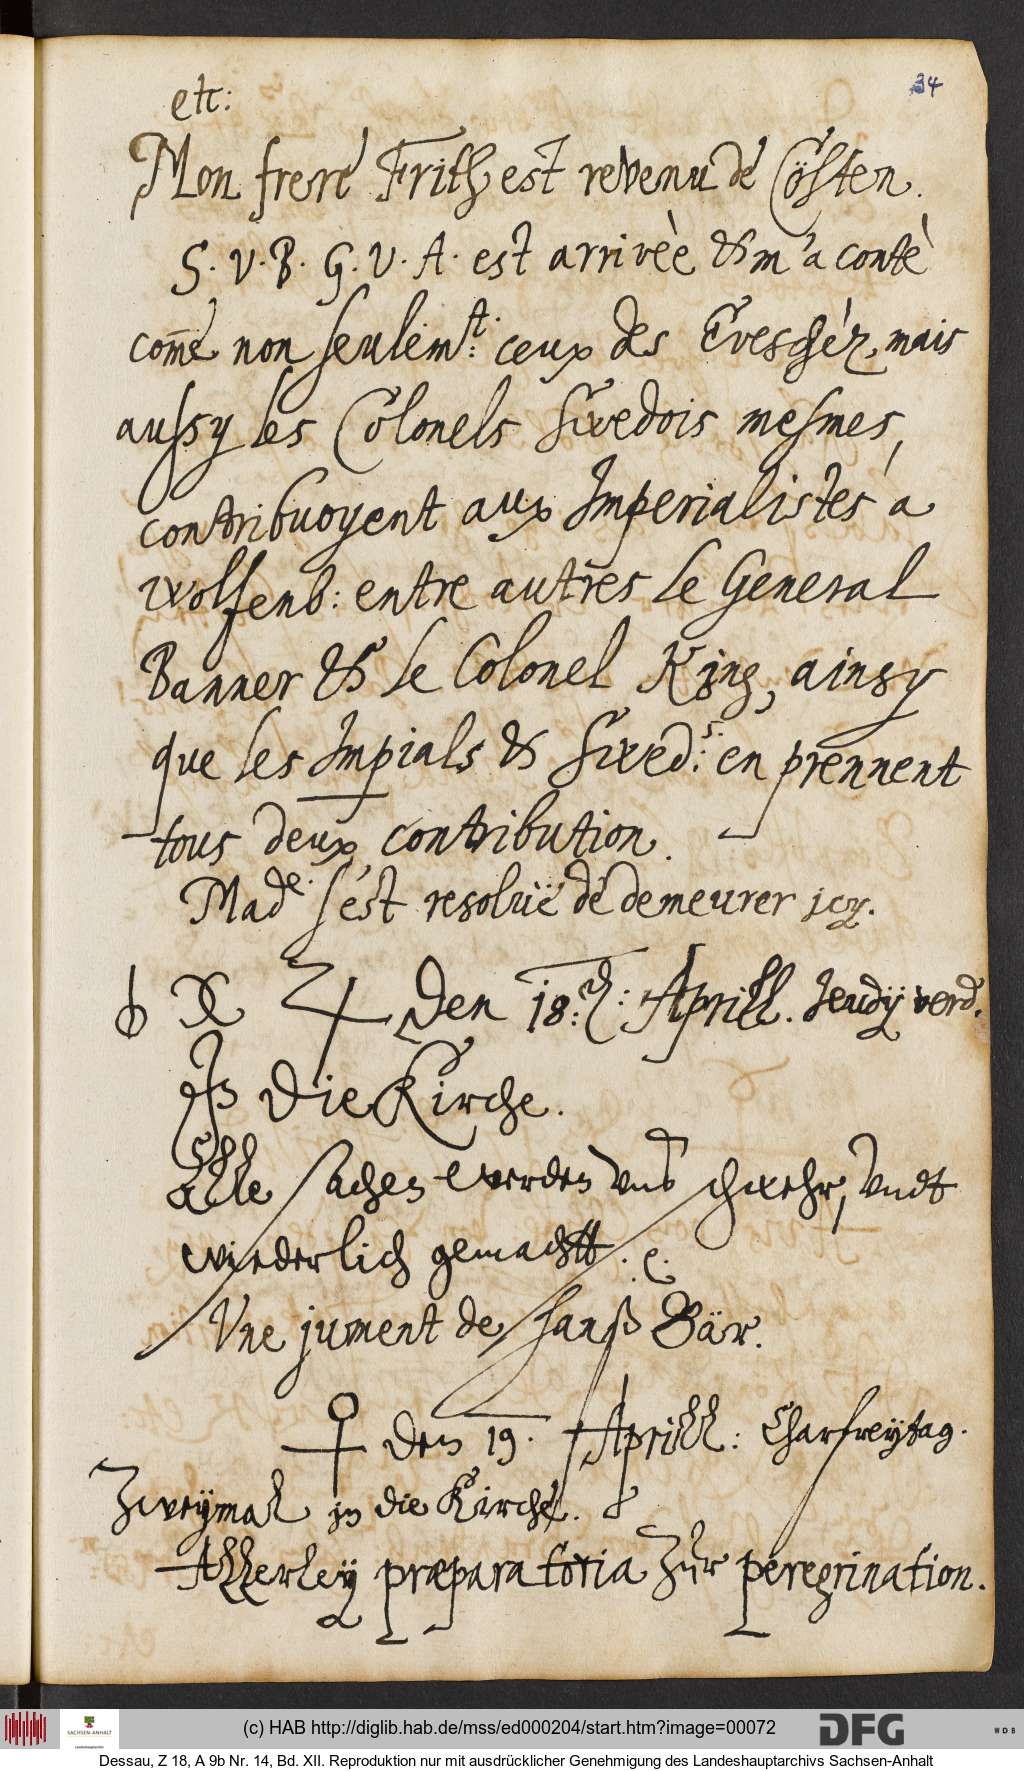 34
etc:
Mon frere Fritz est revenu de Cösten.
S. V. B. G. V. A. est arrivèe & m'a contè
com̄e non seulem:t ceux des Eveschéz, mais
aussy les Colonels Swedois mesmes,
contribuoyent aux Imperialistes a
Wolfenb: entre autres le General
Banner & le Colonel King, ainsy
que les Impials & Swed:s en prennent
tous deux contribution.
Made. s'est resoluë de demeurer icy.
♃ den 18: Aprill. Jeudÿ verd.
Jn die Kirche.
Alle sachen werden vns schwehr, vndt
wiederlich gemachtt. e.
Vne jument de Hanß Bär.
♀ den 19. Aprill: Charfreÿtag.
Zweÿmal jn die Kirche.
Allerleÿ præparatoria zur peregrination.
(c) HAB http://diglib.hab.de/mss/ed000204/start.htm?image=00072
SACHSEN-ANHALT
DFG
WDB
Dessau, Z 18, A 9b Nr. 14, Bd. XII. Reproduktion nur mit ausdrücklicher Genehmigung des Landeshauptarchivs Sachsen-Anhalt